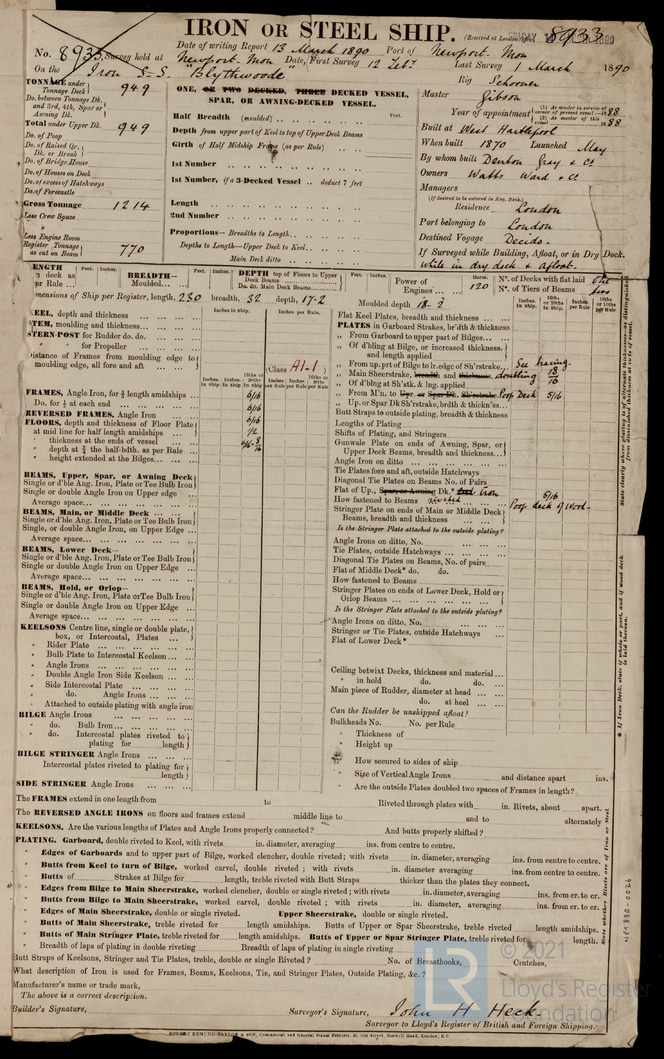 IRON OR STEEL SHIP.
(Received at London Office
8933
No. 8933 Survey held at Newport. Mon
Date of writing Report 13 March 1890 Port of Newport. Mon
Date, First Survey 12 Feby. Last Survey 1 March 1890
On the Iron S.S. "Blythwoode" Rig Schooner
TONNAGE under Tonnage Deck 949
Do. between Tonnage Dk. and 3rd, 4th, Spar or Awning Dk.
Total under Upper Dk. 949
Do. of Poop
Do. of Raised Qr. Dk. or Break
Do. of Bridge House
Do. of Houses on Deck
Do. of excess of Hatchways
Do. of Forecastle
Gross Tonnage 1214
Less Crew Space
Less Engine Room
Register Tonnage as cut on Beam 770
ONE, OR TWO DECKED, THREE DECKED VESSEL,
SPAR, OR AWNING-DECKED VESSEL.
Half Breadth (moulded)
Depth from upper part of Keel to top of Upper Deck Beams
Girth of Half Midship Frame (as per Rule)
1st Number
1st Number, if a 3-Decked Vessel deduct 7 feet
Length
2nd Number
Proportions— Breadths to Length
Depths to Length—Upper Deck to Keel
Main Deck ditto
Master Gibson
Year of appointment (1) As master in service of owner of present vessel:—1888
(2) As master of this vessel:—1888
Built at West Hartlepool
When built 1870 Launched May
By whom built Denton Gray & Co
Owners Watts Ward & Co
Managers
(If desired to be entered in Reg. Book.)
Residence London
Port belonging to London
Destined Voyage
If Surveyed while Building, Afloat, or in Dry Dock.
While in dry dock & afloat.
LENGTH on deck as per Rule
BREADTH— Moulded
DEPTH top of Floors to Upper Deck Beams
Do. do. Main Deck Beams
Power of Engines Horse. 120
No. of Decks with flat laid One
No. of Tiers of Beams
Dimensions of Ship per Register, length, 230 breadth, 32 depth, 17.2 Moulded depth 18.2
KEEL, depth and thickness
STEM, moulding and thickness
STERN-POST for Rudder do. do.
" for Propeller
Distance of Frames from moulding edge to moulding edge, all fore and aft
(Class A1-1)
FRAMES, Angle Iron, for ¾ length amidships 6/16
Do. for ⅕ at each end 6/16
REVERSED FRAMES, Angle Iron 6/16
FLOORS, depth and thickness of Floor Plate at mid line for half length amidships
" thickness at the ends of vessel
" depth at ¾ the half-bdth. as per Rule
" height extended at the Bilges
BEAMS, Upper, Spar, or Awning Deck
Single or d'ble Ang. Iron, Plate or Tee Bulb Iron
Single or double Angle Iron on Upper edge
Average space
BEAMS, Main, or Middle Deck
Single or d'ble Ang. Iron, Plate or Tee Bulb Iron
Single, or double Angle Iron, on Upper Edge
Average space
BEAMS, Lower Deck—
Single or d'ble Ang. Iron, Plate or Tee Bulb Iron
Single or double Angle Iron on Upper Edge
Average space
BEAMS, Hold, or Orlop—
Single or d'ble Ang. Iron, Plate or Tee Bulb Iron
Single or double Angle Iron on Upper Edge
Average space
KEELSONS Centre line, single or double plate, box, or Intercostal, Plates
" Rider Plate
" Bulb Plate to Intercostal Keelson
" Angle Irons
" Double Angle Iron Side Keelson
" Side Intercostal Plate
" do. Angle Irons
" Attached to outside plating with angle iron
BILGE Angle Irons
" do. Bulb Iron
" do. Intercostal plates riveted to plating for length
BILGE STRINGER Angle Irons
Intercostal plates riveted to plating for length
SIDE STRINGER Angle Irons
Flat Keel Plates, breadth and thickness
PLATES in Garboard Strakes, br'dth & thickness
" From Garboard to upper part of Bilges
" Of d'bling at Bilge, or increased thickness, and length applied
" From up. prt of Bilge to lr. edge of Sh'rstrake See tracing.
" Main Sheerstrake, breadth and thickness doubling
" Of d'bling at Sh'stk. & lng. applied
" From M'n. to Upr. or Spar Dk. Sh'rstrake Poop Deck 5/16
" Up. or Spar Dk Sh'rstrake, brdth & thickn'ss
Butt Straps to outside plating, breadth & thickness
Lengths of Plating
Shifts of Plating, and Stringers
Gunwale Plate on ends of Awning, Spar, or Upper Deck Beams, breadth & thickness
Angle Iron on ditto
Tie Plates fore and aft, outside Hatchways
Diagonal Tie Plates on Beams No. of Pairs
Flat of Up., Spar or Awning Dk.* Iron 5/16
How fastened to Beams riveted Poop deck of Wood.
Stringer Plate on ends of Main or Middle Deck Beams, breadth and thickness
Is the Stringer Plate attached to the outside plating?
Angle Irons on ditto, No.
Tie Plates, outside Hatchways
Diagonal Tie Plates on Beams, No. of pairs
Flat of Middle Deck* do. do.
How fastened to Beams
Stringer Plates on ends of Lower Deck, Hold or Orlop Beams
Is the Stringer Plate attached to the outside plating?
Angle Irons on ditto, No.
Stringer or Tie Plates, outside Hatchways
Flat of Lower Deck*
Ceiling betwixt Decks, thickness and material
" in hold do. do.
Main piece of Rudder, diameter at head
do. at heel
Can the Rudder be unshipped afloat?
Bulkheads No. No. per Rule
" Thickness of
" Height up
" How secured to sides of ship
" Size of Vertical Angle Irons and distance apart ins.
" Are the outside Plates doubled two spaces of Frames in length?
The FRAMES extend in one length from to Riveted through plates with in. Rivets, about apart.
The REVERSED ANGLE IRONS on floors and frames extend middle line to and to alternately
KEELSONS. Are the various lengths of Plates and Angle Irons properly connected? And butts properly shifted?
PLATING. Garboard, double riveted to Keel, with rivets in. diameter, averaging ins. from centre to centre.
" Edges of Garboards and to upper part of Bilge, worked clencher, double riveted; with rivets in. diameter, averaging ins. from centre to centre.
" Butts from Keel to turn of Bilge, worked carvel, double riveted; with rivets in. diameter averaging ins. from centre to centre.
" Butts of Strakes at Bilge for length, treble riveted with Butt Straps thicker than the plates they connect.
" Edges from Bilge to Main Sheerstrake, worked clencher, double or single riveted; with rivets in. diameter, averaging ins. from cr. to cr.
" Butts from Bilge to Main Sheerstrake, worked carvel, double riveted; with rivets in. diameter, averaging ins. from cr. to cr.
" Edges of Main Sheerstrake, double or single riveted. Upper Sheerstrake, double or single riveted.
" Butts of Main Sheerstrake, treble riveted for length amidships. Butts of Upper or Spar Sheerstrake, treble riveted length amidships.
" Butts of Main Stringer Plate, treble riveted for length amidships. Butts of Upper or Spar Stringer Plate, treble riveted for length.
" Breadth of laps of plating in double riveting Breadth of laps of plating in single riveting
Butt Straps of Keelsons, Stringer and Tie Plates, treble, double or single Riveted? No. of Breasthooks, Crutches,
What description of Iron is used for Frames, Beams, Keelsons, Tie, and Stringer Plates, Outside Plating, &c.?
Manufacturer's name or trade mark,
The above is a correct description.
Builder's Signature, Surveyor's Signature, John H Heck
Surveyor to Lloyd's Register of British and Foreign Shipping.
* If Iron Deck, state if whole or part, and if wood deck is laid thereon.
© 2021
LR
Lloyd's Register
Foundation